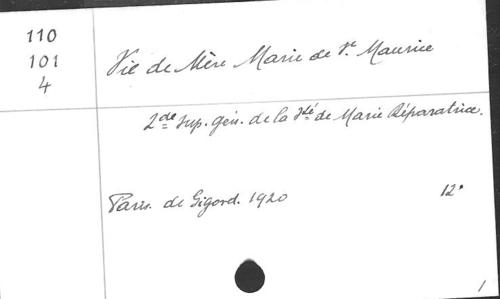 110
101
4
Vie de Mère Marie de St. Maurice
2de sup. gén. de la Sté de Marie Réparatrice.
Paris. de Gigord. 1920 12°
1